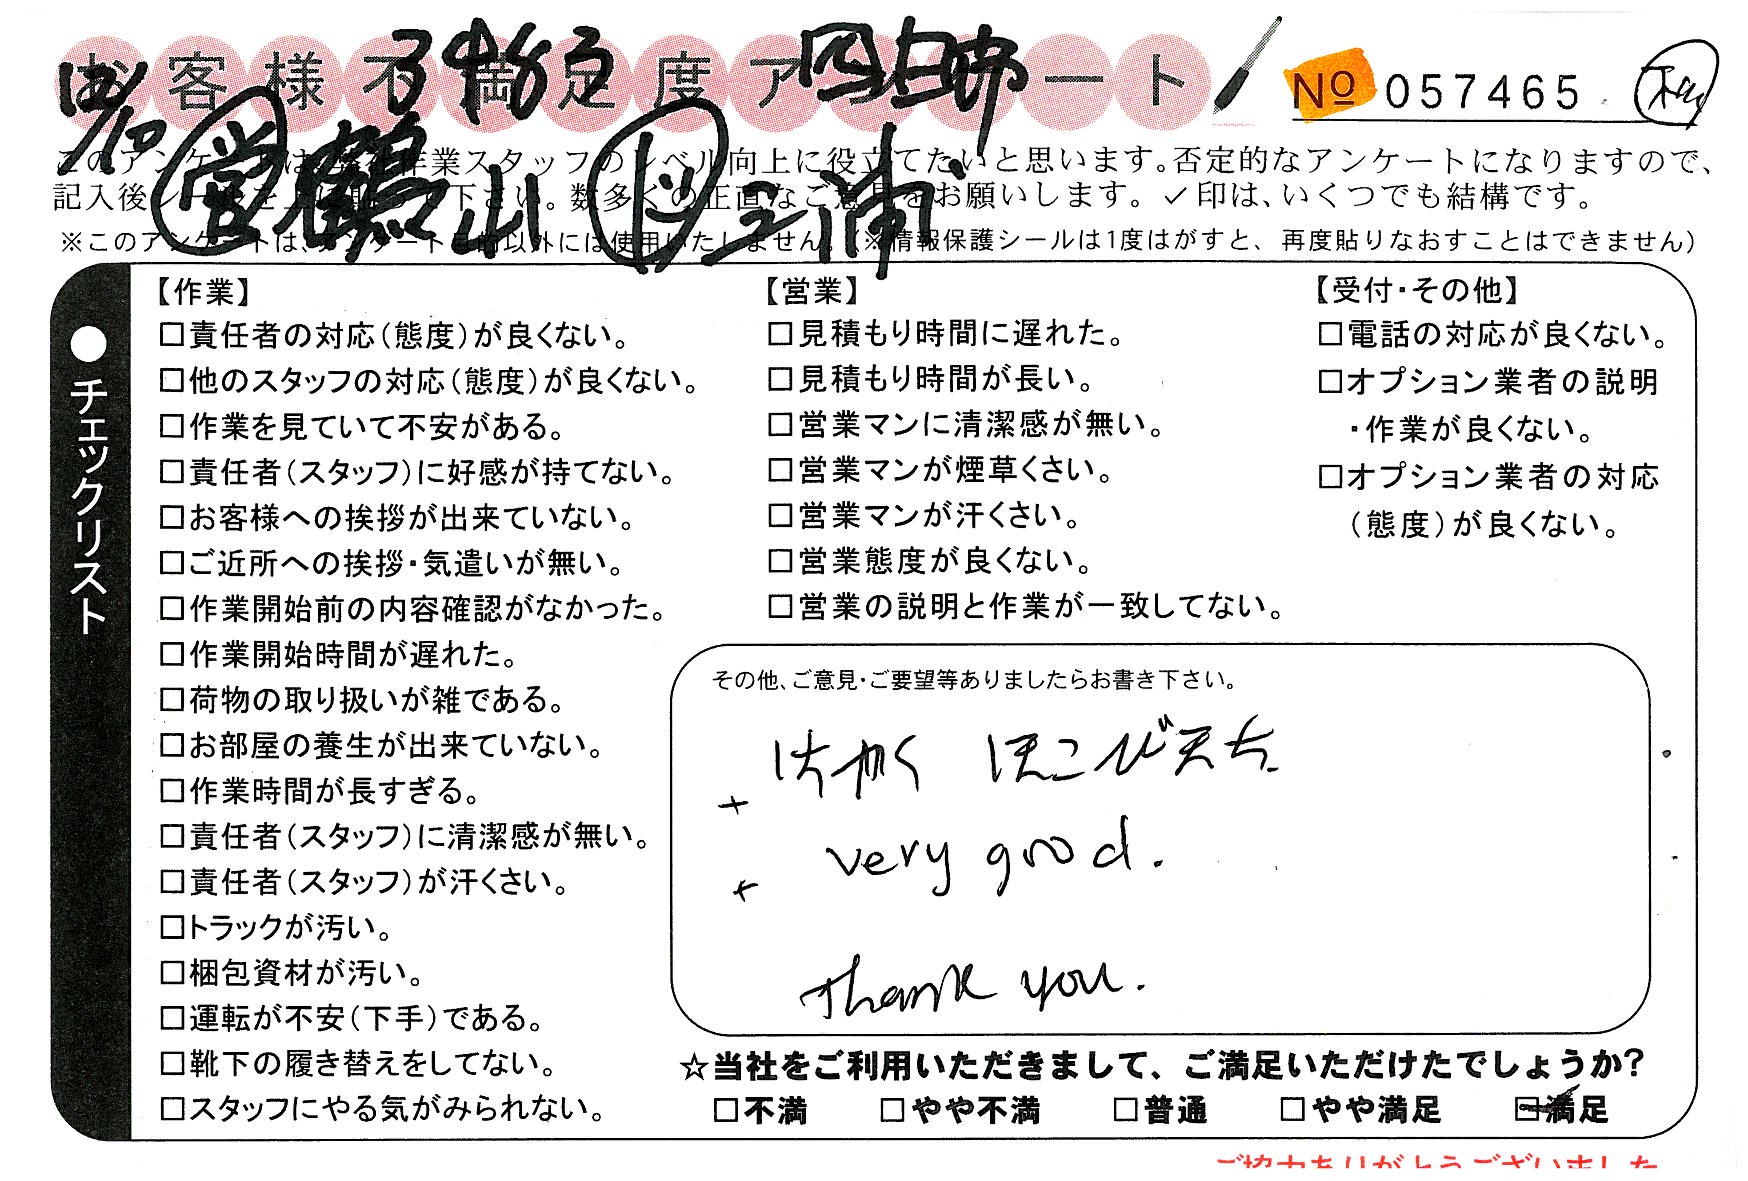 お客様不満足度アンケート
12/10 3463 四日市
№ 057465
営 鶴山 ド 三浦
このアンケートは、当社作業スタッフのレベル向上に役立てたいと思います。否定的なアンケートになりますので、
記入後シールを上に貼って下さい。数多くの正直なご意見をお願いします。✓印は、いくつでも結構です。
※このアンケートは、アンケート目的以外には使用いたしません。(※情報保護シールは1度はがすと、再度貼りなおすことはできません)
●チェックリスト
【作業】
□責任者の対応(態度)が良くない。
□他のスタッフの対応(態度)が良くない。
□作業を見ていて不安がある。
□責任者(スタッフ)に好感が持てない。
□お客様への挨拶が出来ていない。
□ご近所への挨拶・気遣いが無い。
□作業開始前の内容確認がなかった。
□作業開始時間が遅れた。
□荷物の取り扱いが雑である。
□お部屋の養生が出来ていない。
□作業時間が長すぎる。
□責任者(スタッフ)に清潔感が無い。
□責任者(スタッフ)が汗くさい。
□トラックが汚い。
□梱包資材が汚い。
□運転が不安(下手)である。
□靴下の履き替えをしてない。
□スタッフにやる気がみられない。
【営業】
□見積もり時間に遅れた。
□見積もり時間が長い。
□営業マンに清潔感が無い。
□営業マンが煙草くさい。
□営業マンが汗くさい。
□営業態度が良くない。
□営業の説明と作業が一致してない。
【受付・その他】
□電話の対応が良くない。
□オプション業者の説明
・作業が良くない。
□オプション業者の対応
(態度)が良くない。
その他、ご意見・ご要望等ありましたらお書き下さい。
はやく はこびます.
very good.
Thank you.
☆当社をご利用いただきまして、ご満足いただけたでしょうか?
□不満 □やや不満 □普通 □やや満足 ☑満足
ご協力ありがとうございました